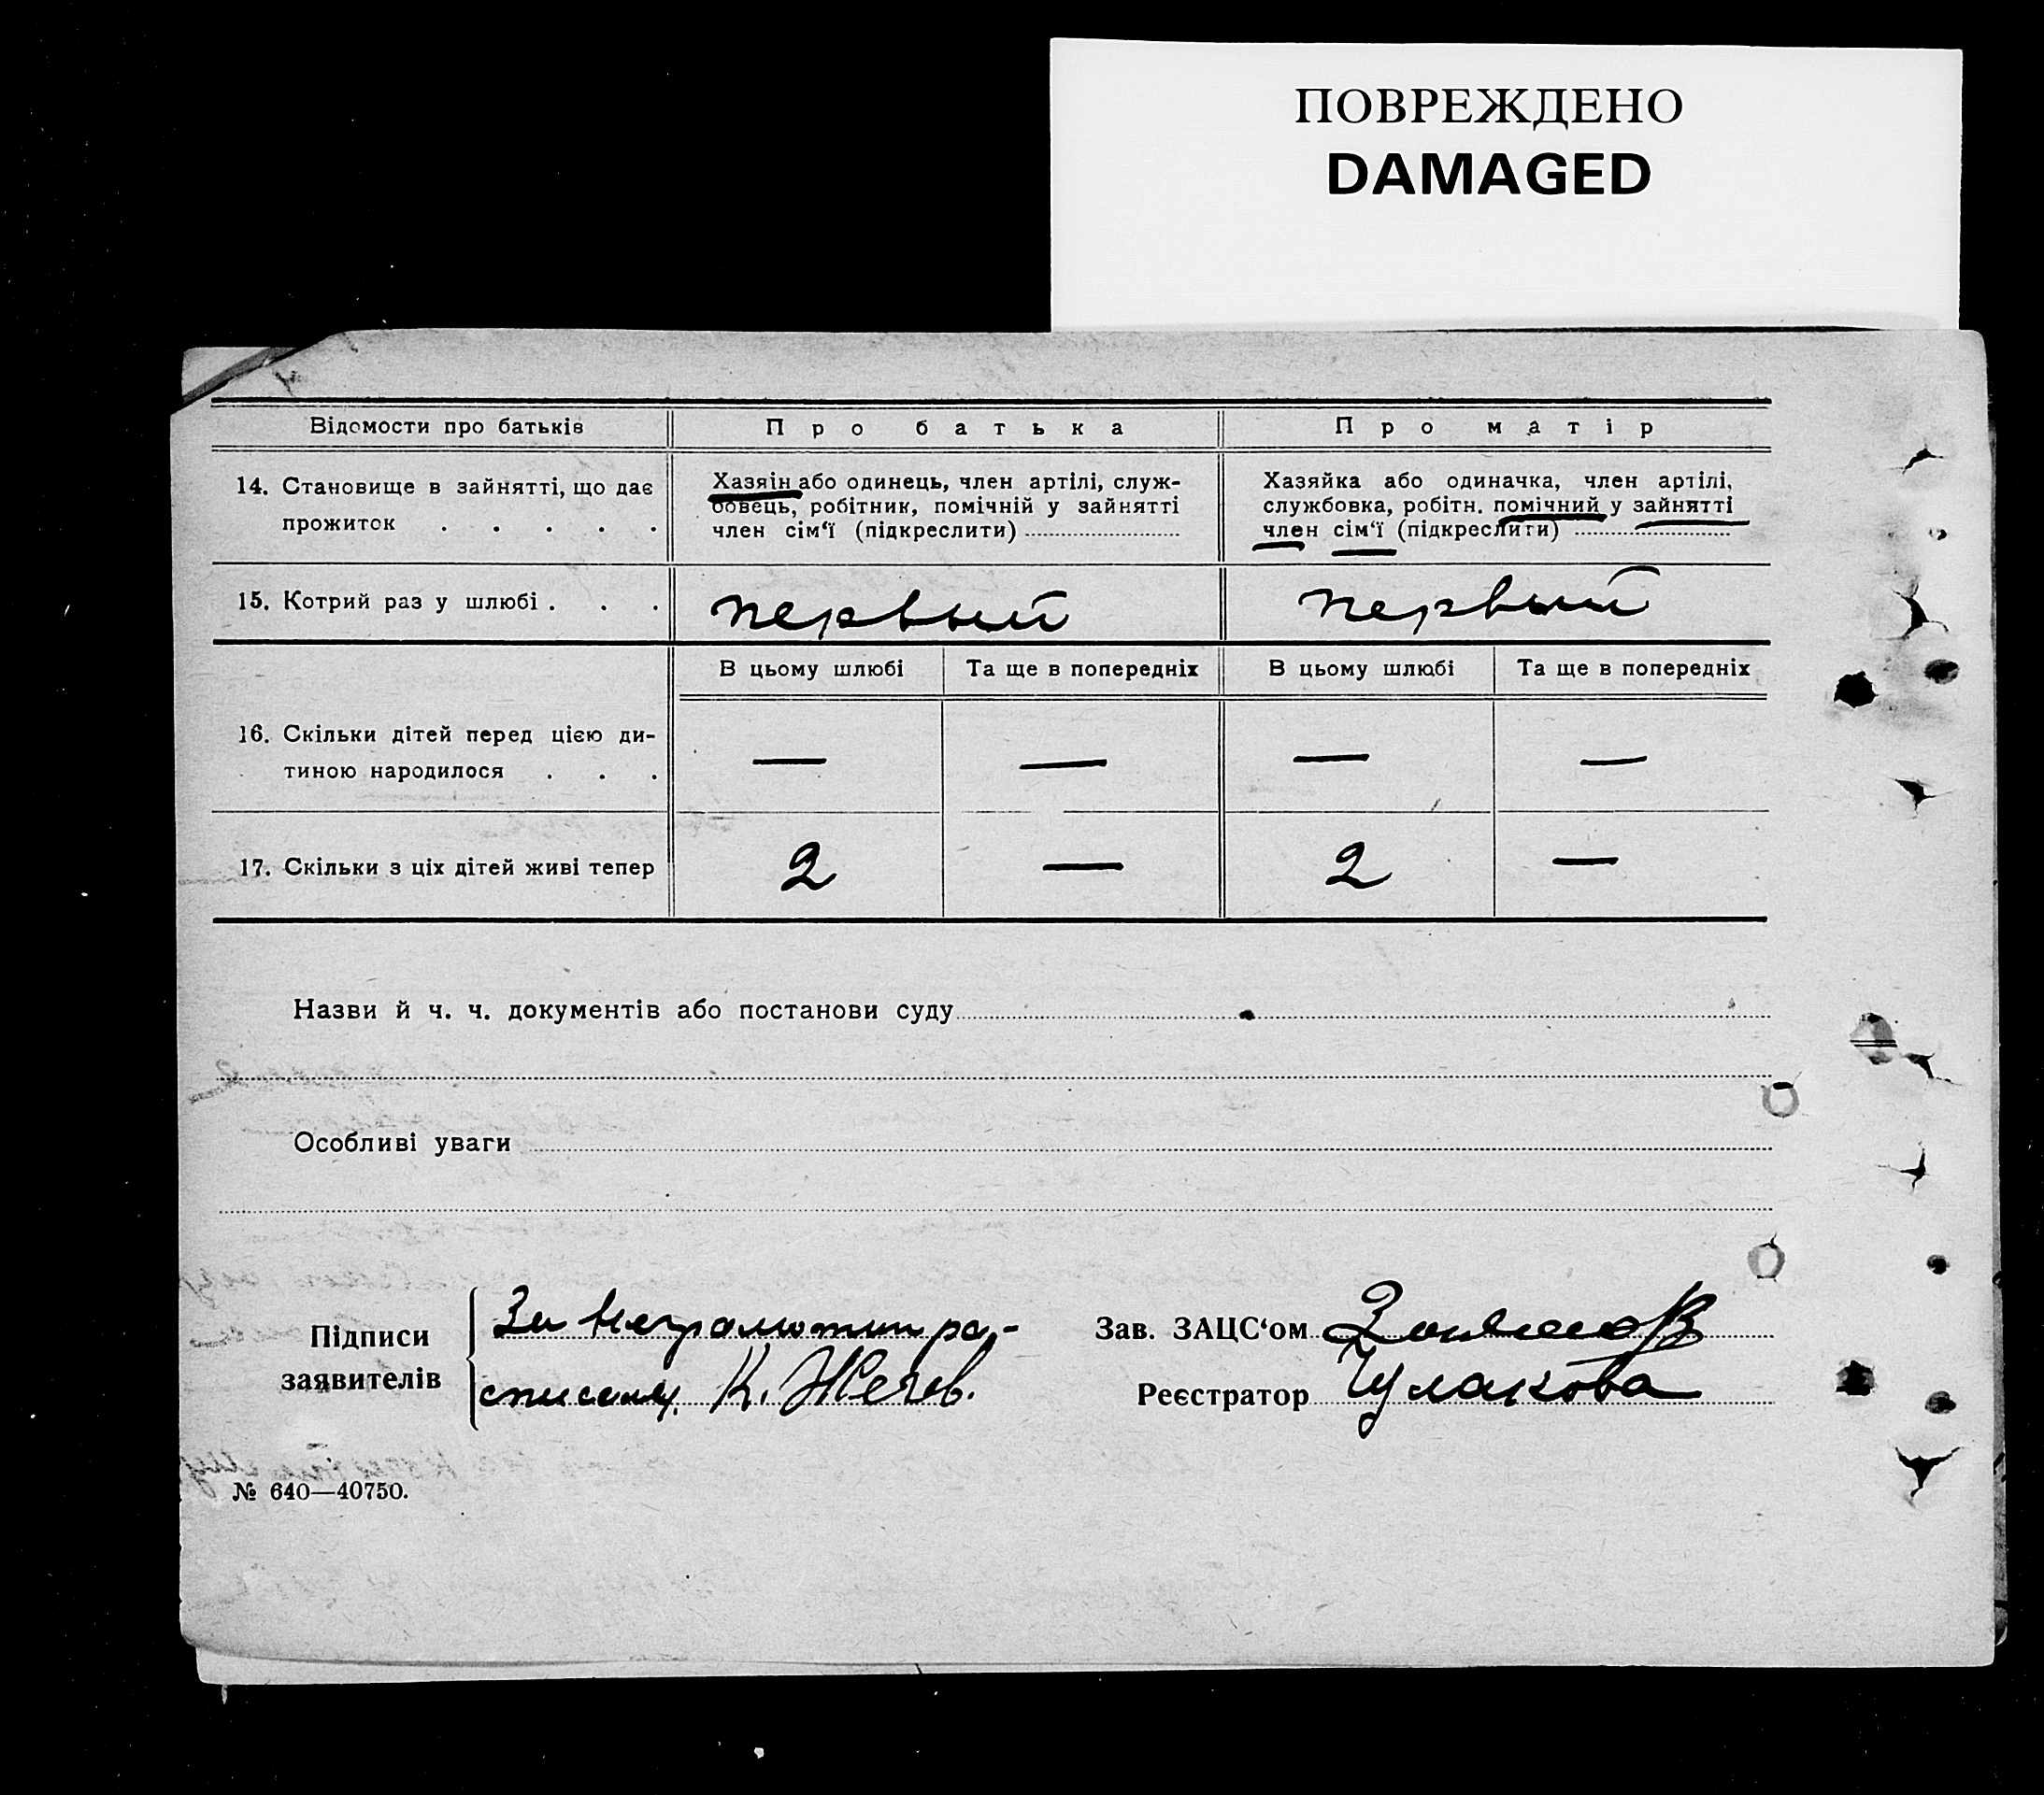 ПОВРЕЖДЕНО
DAMAGED
Відомости про батьків
Про батька
Про матір
14. Становище в зайнятті, що дає
прожиток . . . . .
Хазяін або одинець, член артілі, служ-
бовець, робітник, помічній у зайнятті
член сім‘ї (підкреслити)
Хазяйка або одиначка, член артілі,
службовка, робітн. помічний у зайнятті
член сім‘ї (підкреслити)
15. Котрий раз у шлюбі . . .
первый
первый
В цьому шлюбі
Та ще в попередніх
В цьому шлюбі
Та ще в попередніх
16. Скільки дітей перед цією ди-
тиною народилося . . .
— — — —
17. Скільки з ціх дітей живі тепер
2 — 2 —
Назви й ч. ч. документів або постанови суду
Особливі уваги
Підписи
заявителів
За неграмотн ра-
К. Жечев.
Зав. ЗАЦС‘ом
Реєстратор Чулакова
№ 640—40750.